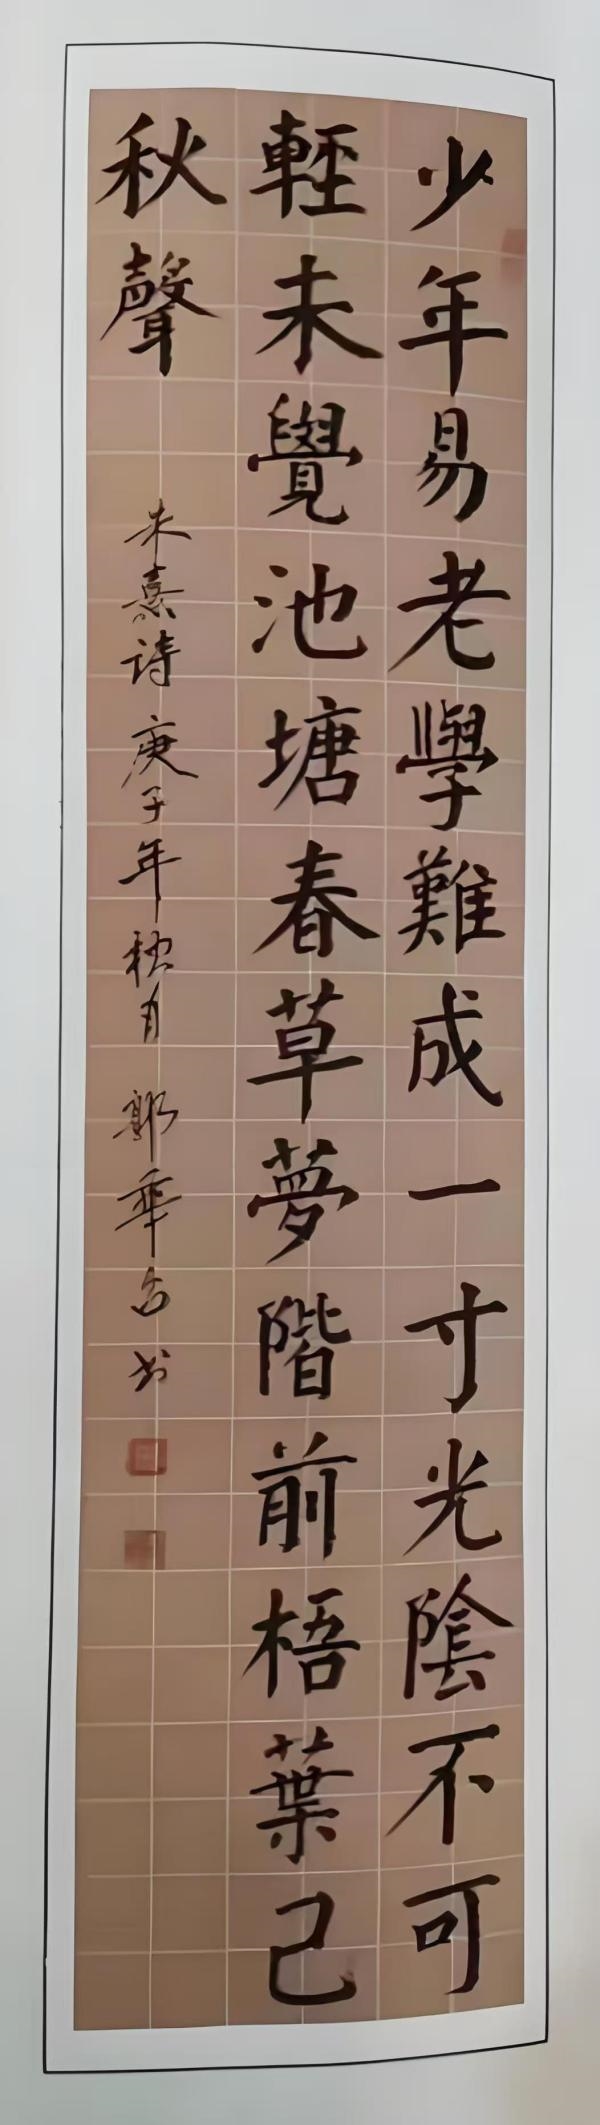 少年易老學難成一寸光陰不可
輕未覺池塘春草夢階前梧葉己
秋聲
朱熹詩 庚子年秋月 郭華书